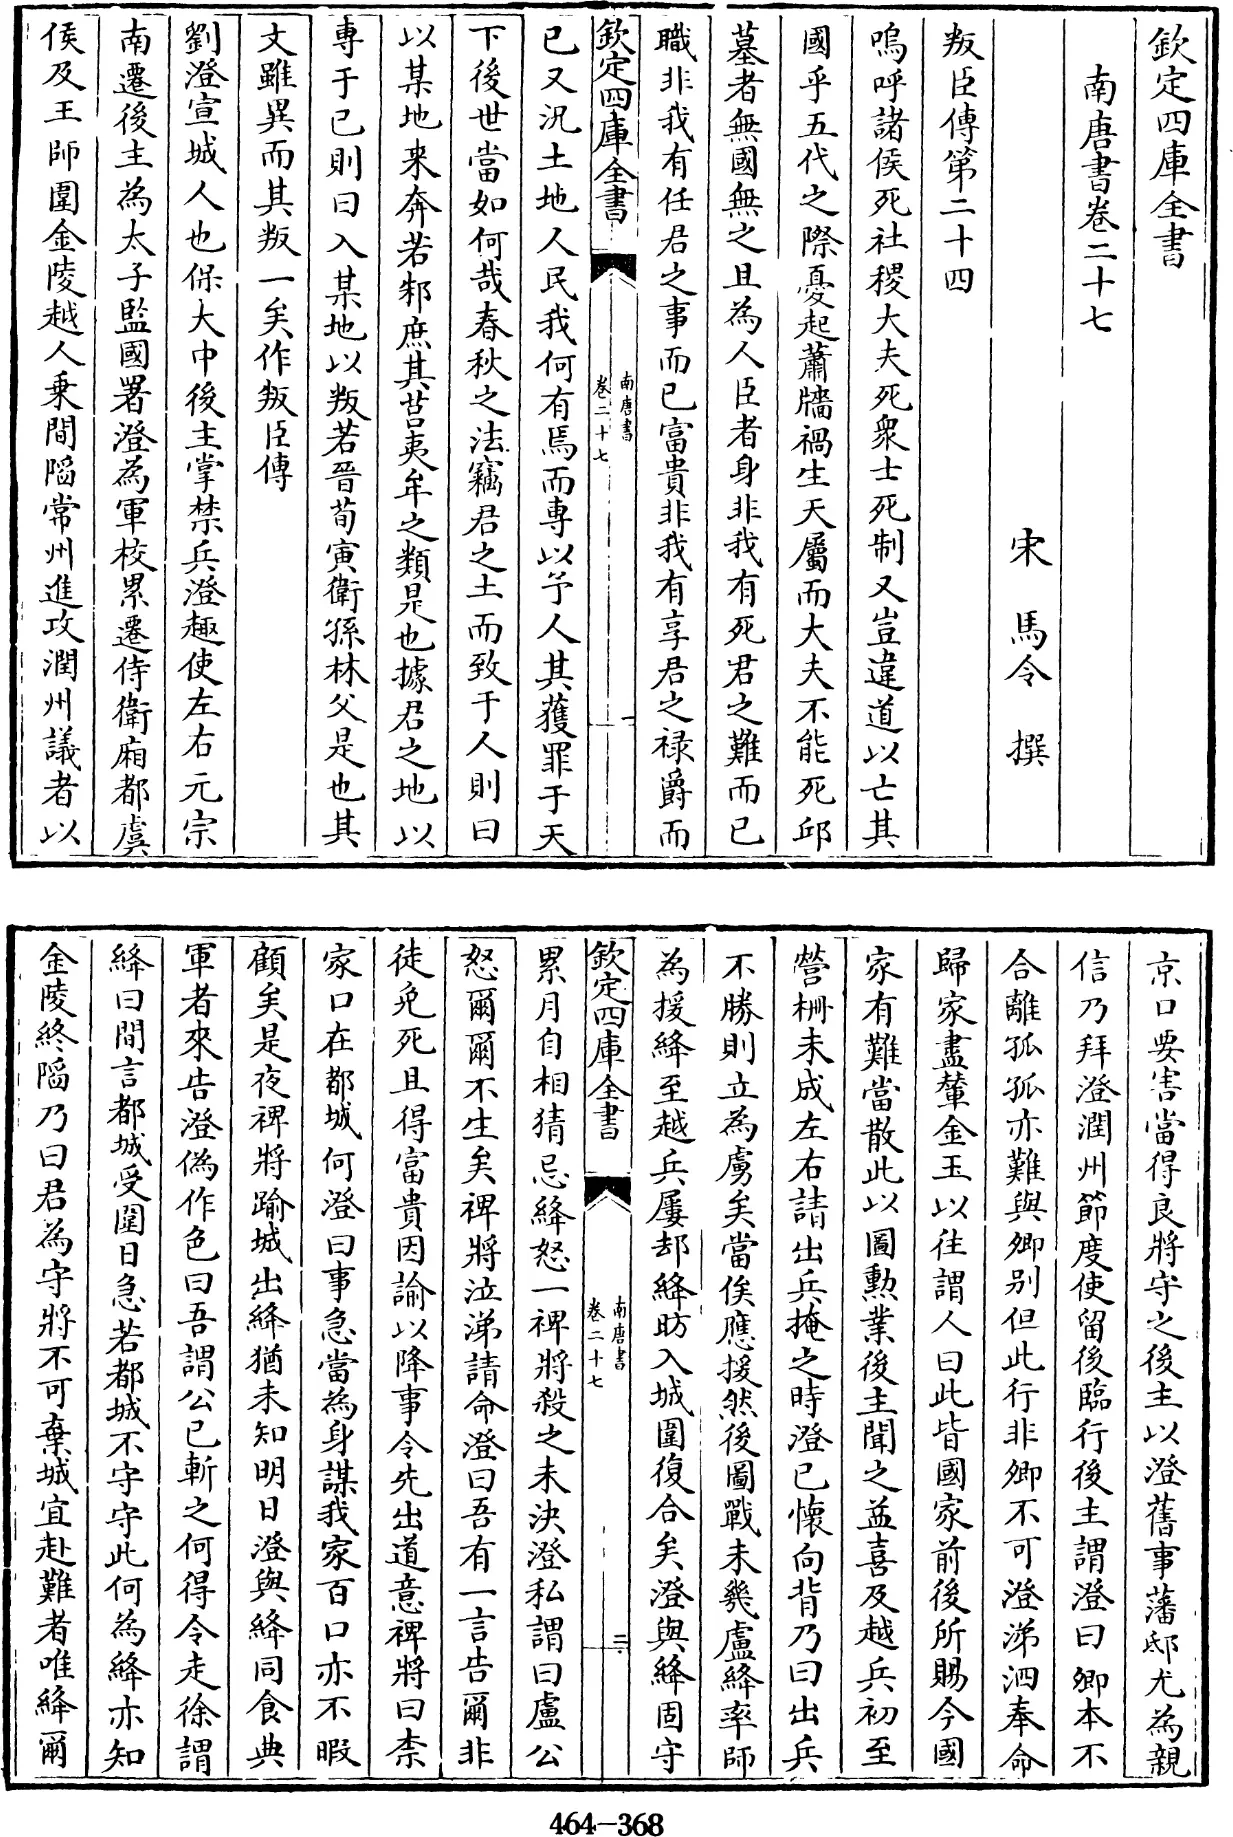 欽定四庫全書
南唐書卷二十七
宋 馬令 撰
叛臣傳第二十四
嗚呼諸侯死社稷大夫死衆士死制又豈違道以亡其
國乎五代之際憂起蕭牆禍生天屬而大夫不能死邱
墓者無國無之且為人臣者身非我有死君之難而已
職非我有任君之事而已富貴非我有享君之禄爵而
欽定四庫全書
南唐書
卷二十七
一
已又況土地人民我何有焉而專以予人其獲罪于天
下後世當如何哉春秋之法竊君之土而致于人則曰
以某地来奔若邾庶其莒夷牟之類是也據君之地以
專于已則曰入某地以叛若晉荀寅衛孫林父是也其
文雖異而其叛一矣作叛臣傳
劉澄宣城人也保大中後主掌禁兵澄趣使左右元宗
南遷後主為太子監國署澄為軍校累遷侍衛廂都虞
侯及王師圍金陵越人乗間陷常州進攻潤州議者以
京口要害當得良將守之後主以澄舊事藩邸尤為親
信乃拜澄潤州節度使留後臨行後主謂澄曰卿本不
合離孤孤亦難與卿别但此行非卿不可澄涕泗奉命
歸家盡輦金玉以往謂人曰此皆國家前後所賜今國
家有難當散此以圖勲業後主聞之益喜及越兵初至
營柵未成左右請出兵掩之時澄已懐向背乃曰出兵
不勝則立為虜矣當俟應援然後圖戰未幾盧絳率師
為援絳至越兵屢却絳昉入城圍復合矣澄與絳固守
欽定四庫全書
南唐書
卷二十七
二
累月自相猜忌絳怒一禆將殺之未決澄私謂曰盧公
怒爾爾不生矣禆將泣涕請命澄曰吾有一言告爾非
徒免死且得富貴因諭以降事令先出道意禆將曰柰
家口在都城何澄曰事急當為身謀我家百口亦不暇
顧矣是夜禆將踰城出絳猶未知明日澄與絳同食典
軍者來告澄偽作色曰吾謂公已斬之何得令走徐謂
絳曰間言都城受圍日急若都城不守守此何為絳亦知
金陵終陷乃曰君為守將不可棄城宜赴難者唯絳爾
464-368